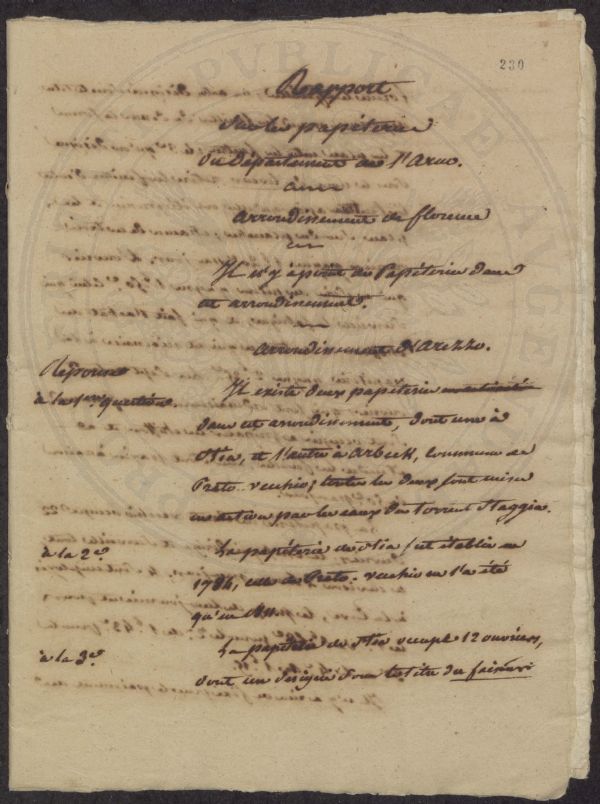 230
Rapport
Sur les papéteries
du Département de l'Arno.
Arrondissement de florence
Il n'y a point de Papéterie dans
cet arrondissement.
Arrondissement d'Arezzo.
Réponse
à la 1ere question.
Il existe deux papéteries
dans cet arrondissement, dont une à
Stia, et l'autre à , Commune de
Prato-vecchio; toutes les deux sont mises
en action par les eaux du torrent Staggia.
à la 2e
La papéterie de Stia fut établie en
1786, celle de Prato-vecchio en l'a été
qu'en
à la 3e
La papéterie de Stia occupe 12 ouvriers,
dont un désigné sous le titre du